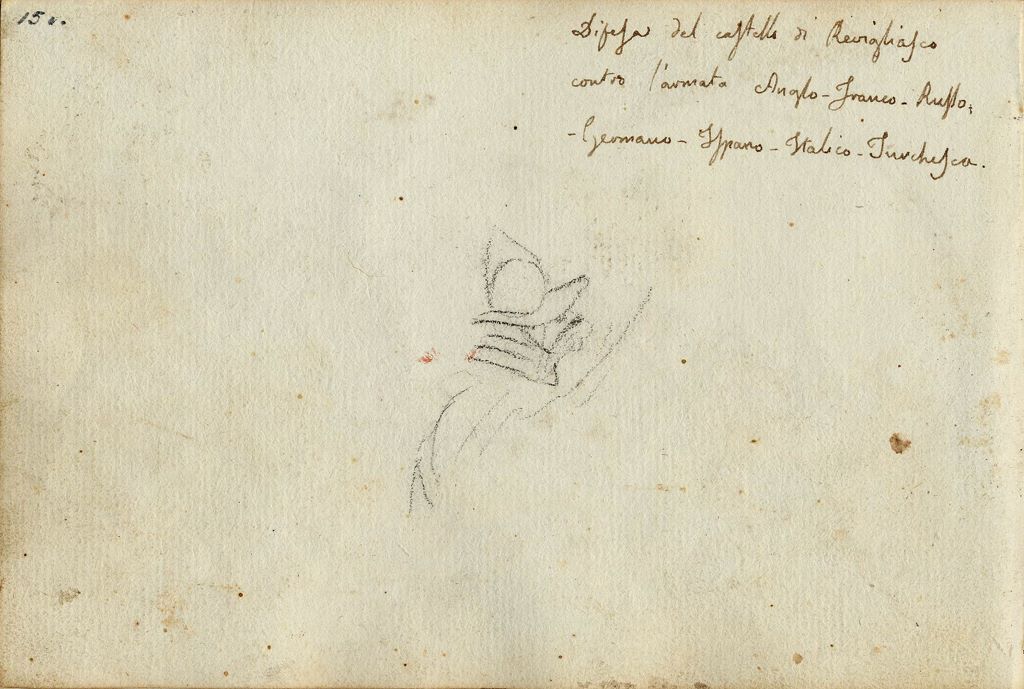 15 v.
Difesa del castello di Revigliasco
contro l'armata Anglo-Franco-Russo-
-Germano-Ispano-Italico-Turchesca.